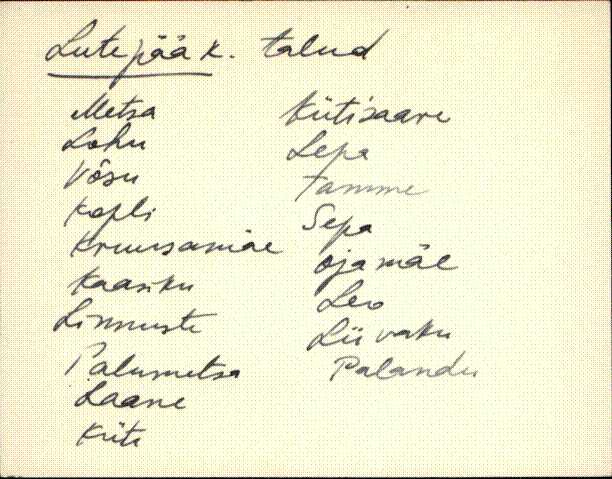 Lutepää k. talud
Metsa
Lohu
Võsu
Kopli
Kruusamäe
Kaasiku
Linnuste
Palumetsa
Laane
Küti
Kütisaare
Lepa
Tamme
Sepa
Ojamäe
Leo
Liivaku
Palandu